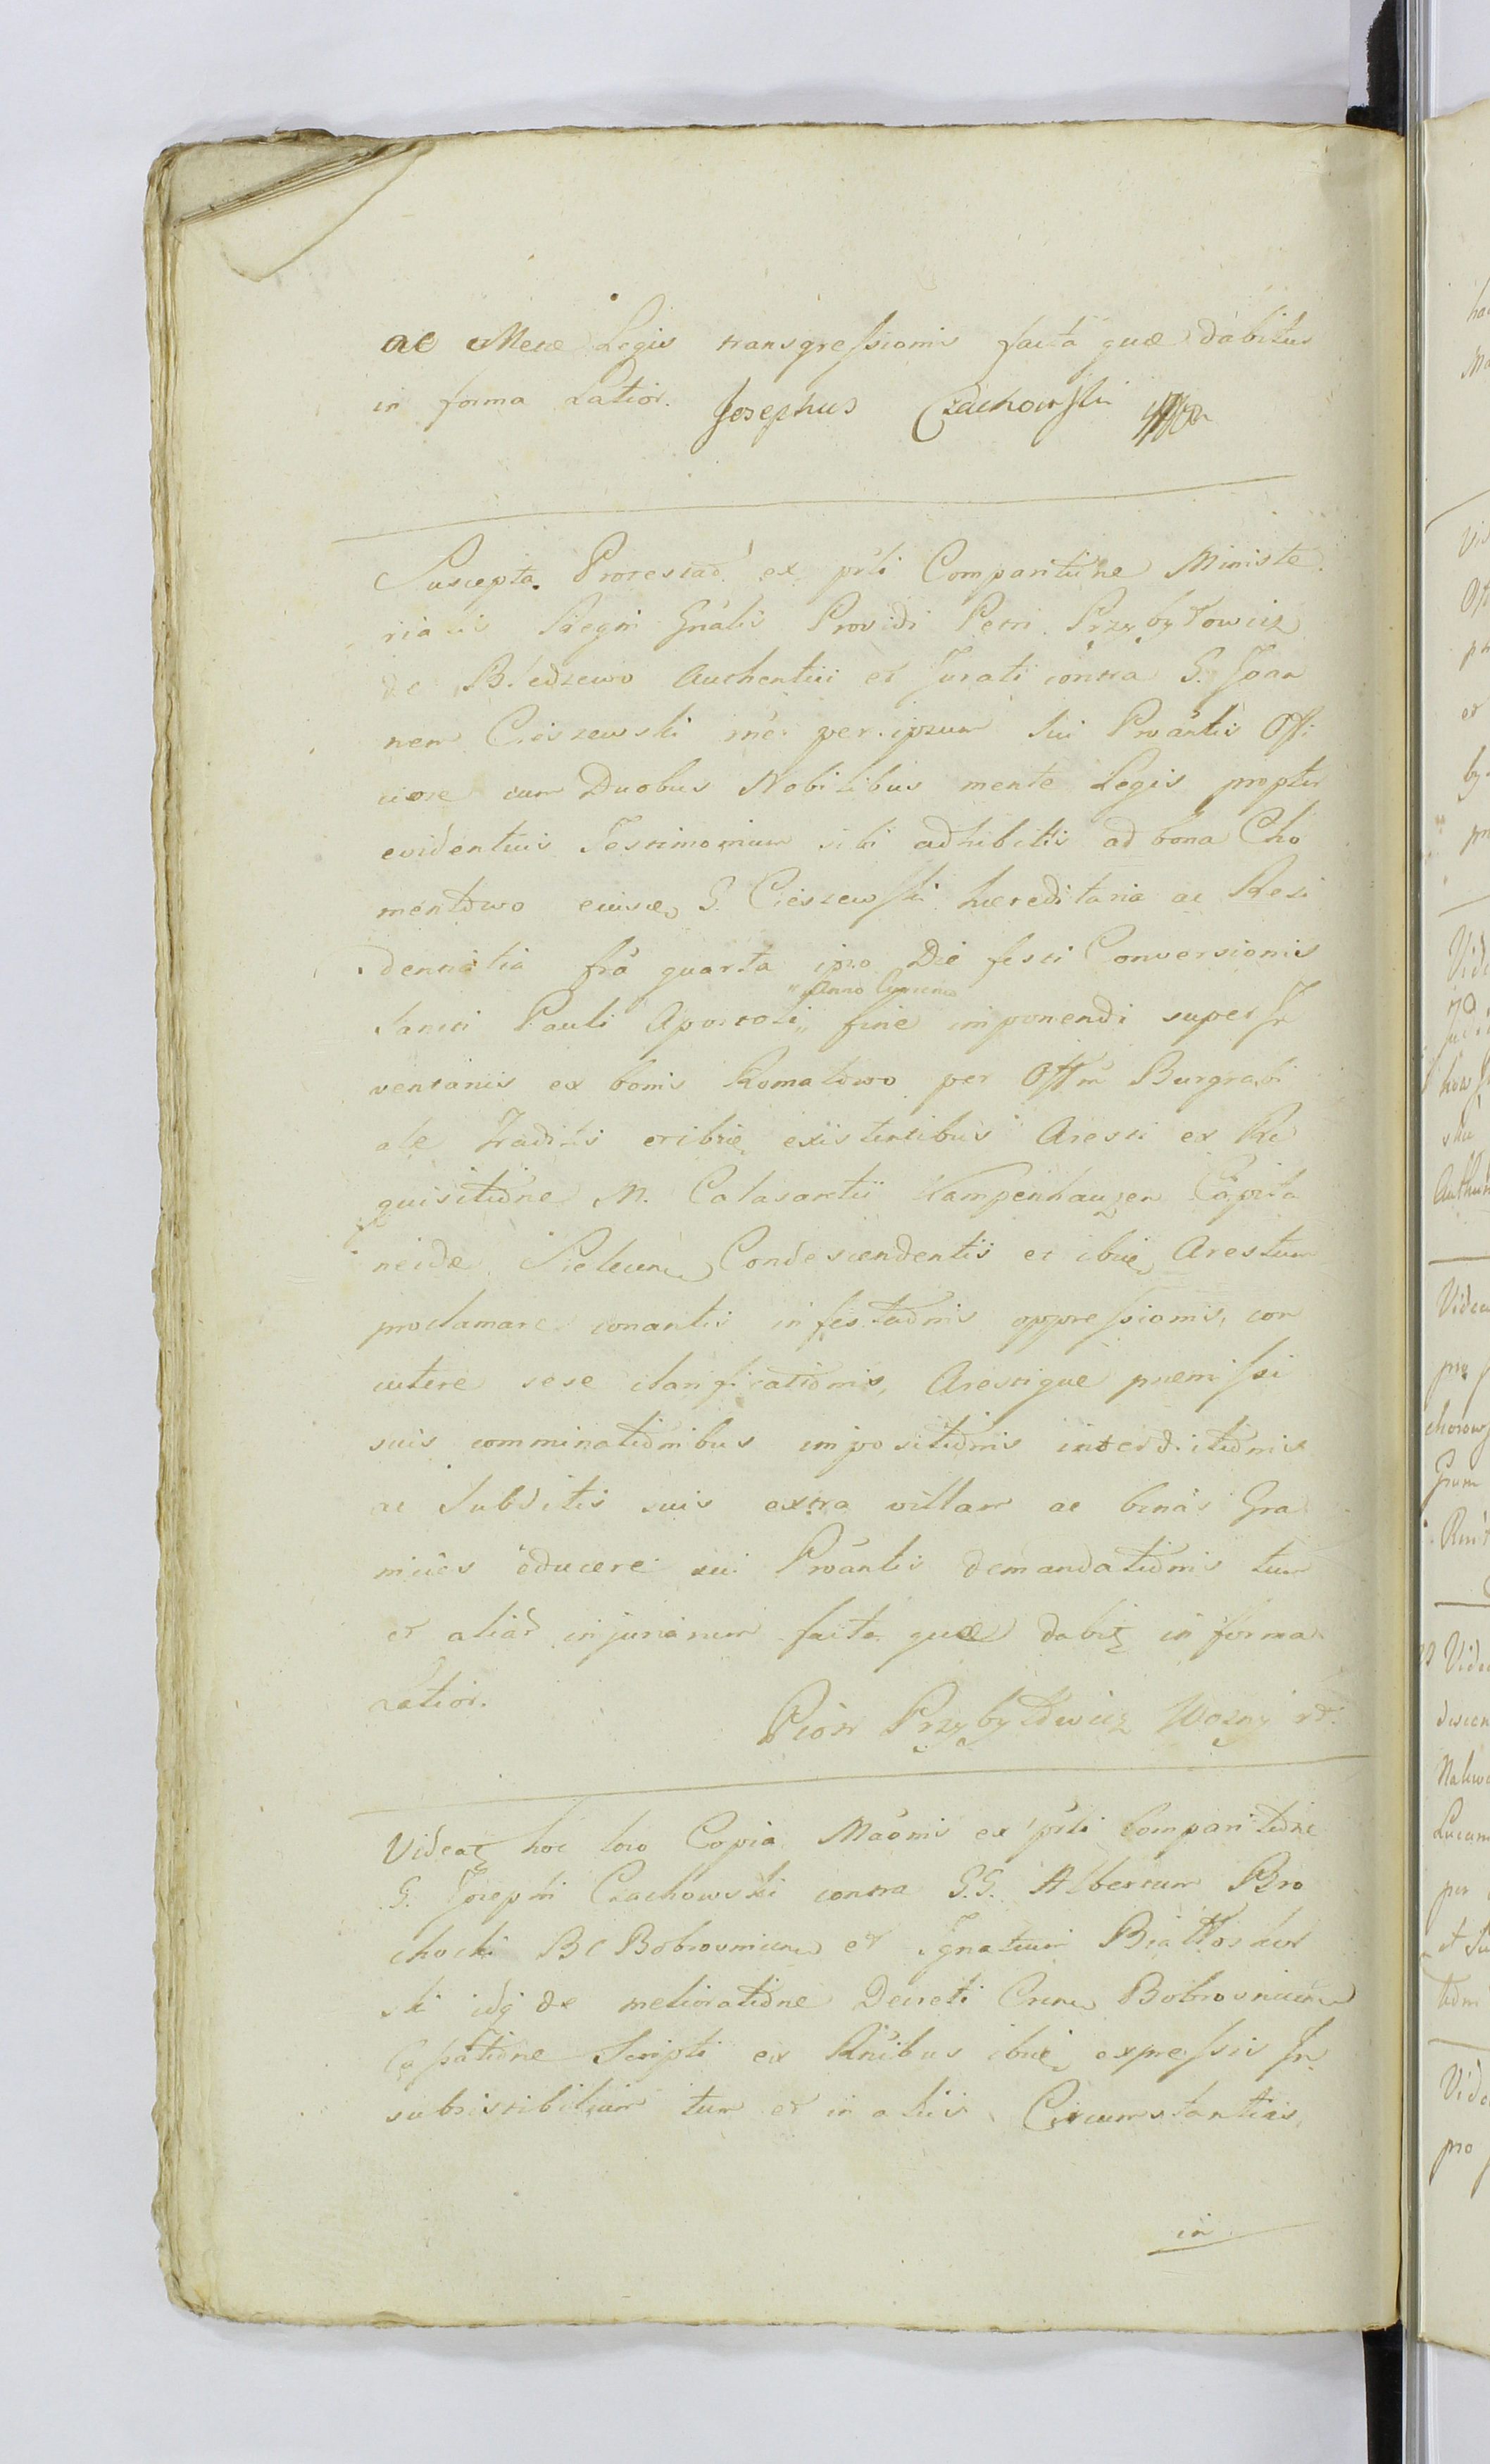 ac Mene Legis transgressionis facta quæ dabitur
in forma Latior. Josephus Czachowski
Suscepta Protestao ex prli Comparitione Ministe
rialis Regni Gnalis Providi Petri Przybyłowicz
de Bledzewo Authentici et Jurati contra G. Joan
nem Ciszewski rne per ipsum sui Proantis Offi
ciose cum Duobus Nobilibus mente Legis propter
evidentius Testimonium sibi adhibitis ad bona Cho
mentowo eiusd G. Cieszewski hæreditaria ac Resi
dentialia fra quarta ipso Die festi Conversionis
" Anno Curren
Sancti Pauli Apostoli " fine imponendi super In
ventariis ex bonis Romatowo per Offm Burgrabi
ale Traditis et ibid existentibus Aresti ex Re
quisitione M. Calasantii Kampenhauzen Capita
neidæ Condescendentis et ibid Arestum
proclamare conantis infestaonis oppressionis, con
cutere sese clarificationis, Arestique præmissi
suis comminationibus impositionis interditionis
ac Subditis suis extra villam ac binas Gra
nicies educere sui Proantis demandationis tum
et aliar injuriarum facta quæ dabit in forma
Latior.
Piotr Przybyłowicz Wozny
Videat hoc loco Copia Maonis ex prli Comparitione
G. Josephi Czachowski contra G.G. Albertum Bro
chocki BC Bobrovnicen et Ignatium Białłoskur
ski idq de melioratione Decreti Bobrovnicen
Cassatione Scripti ex Rnibus ibid expressis In
subsistibilium tum et in aliis Circumstantiis
in